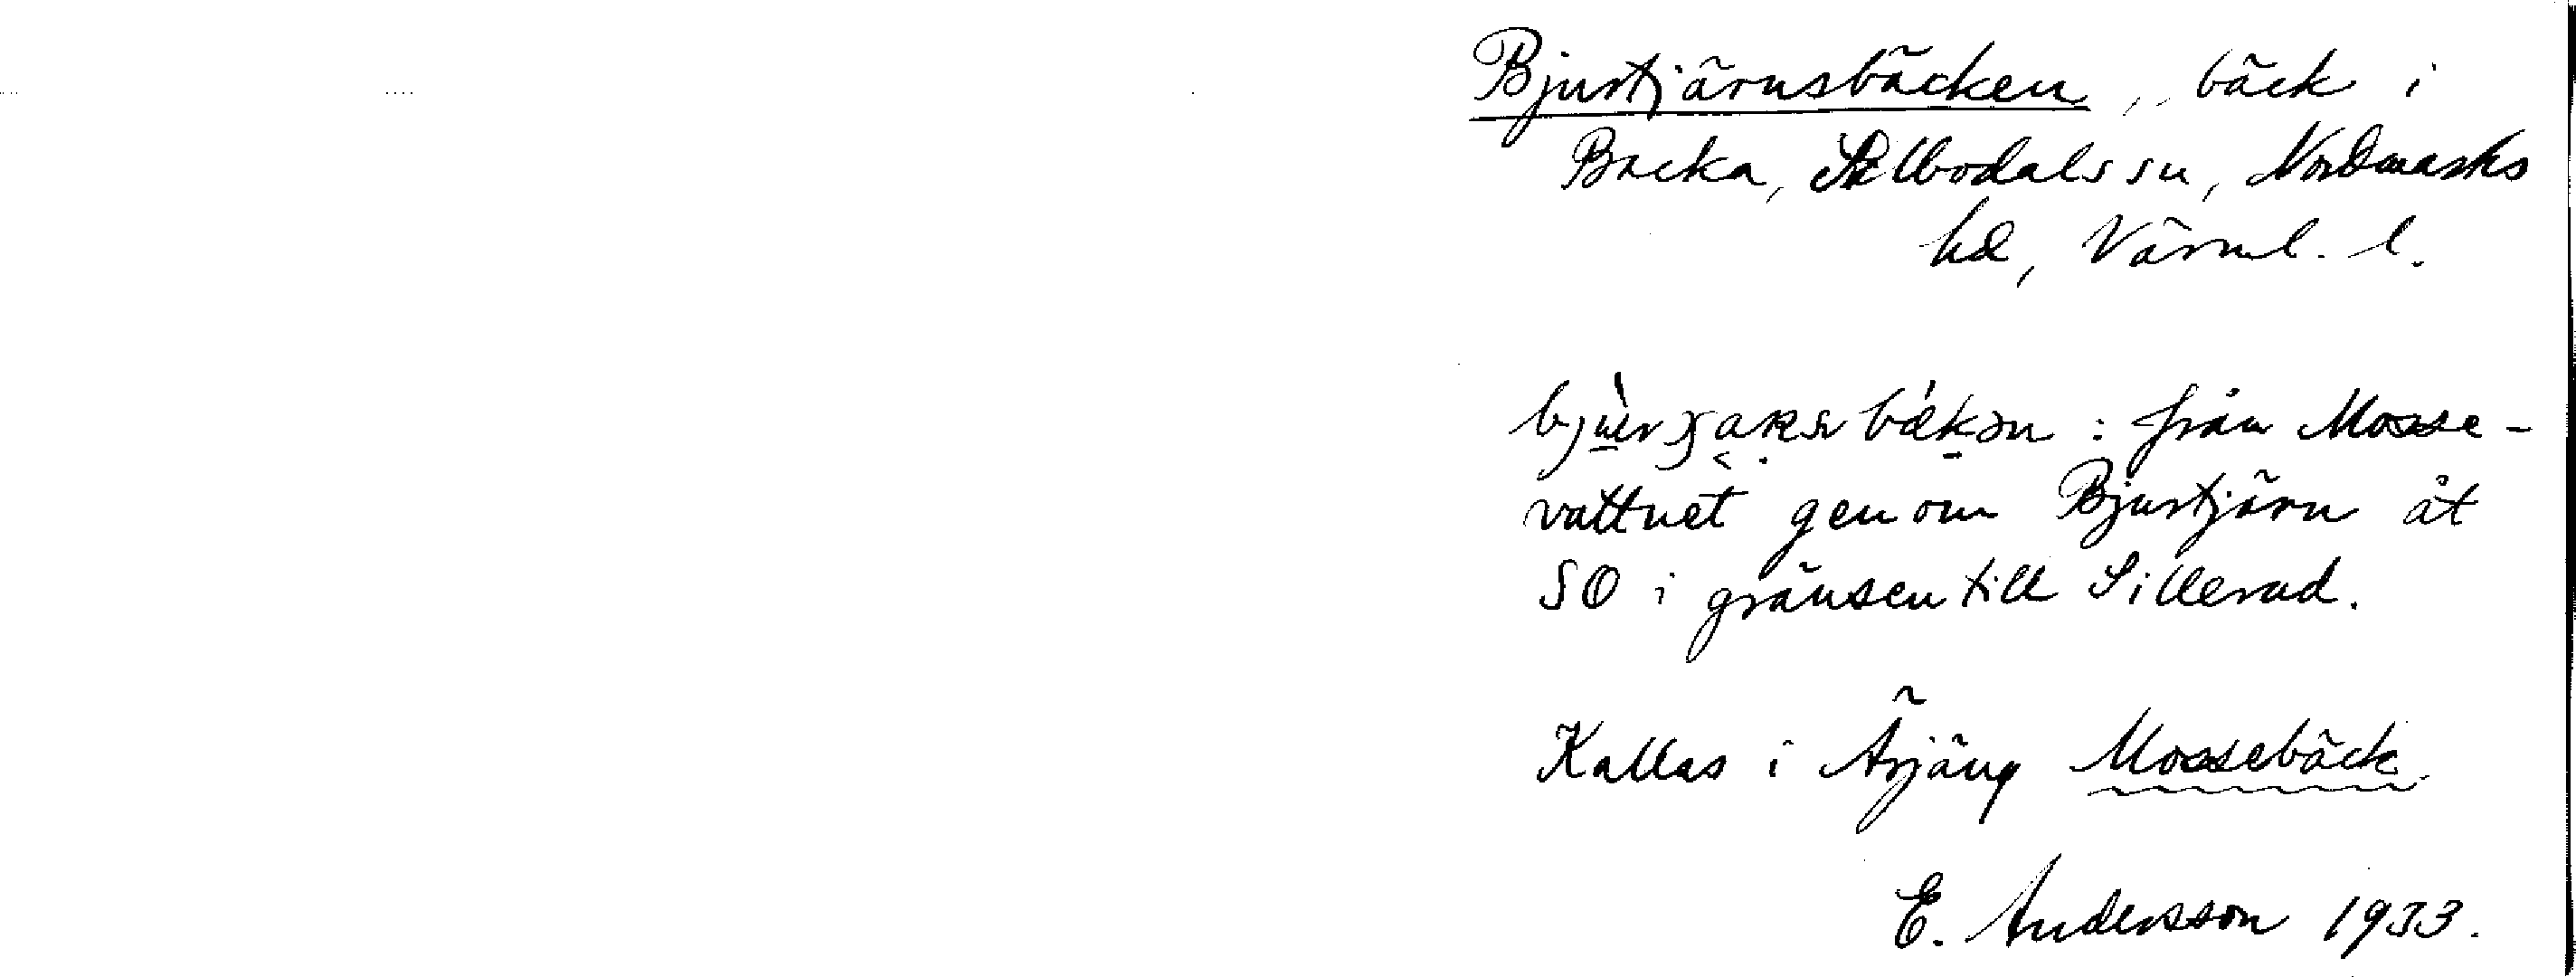 Bjurtjärnsbäcken, bäck i
Backa, Silbodals sn, Nordmarks
hd, Värml. l.
: från Mosse-
vattnet genom Bjurtjärn åt
SO i gränsen till Sillerud.
Kallas i Årjäng Mossebäck
E. Andersson 1933.